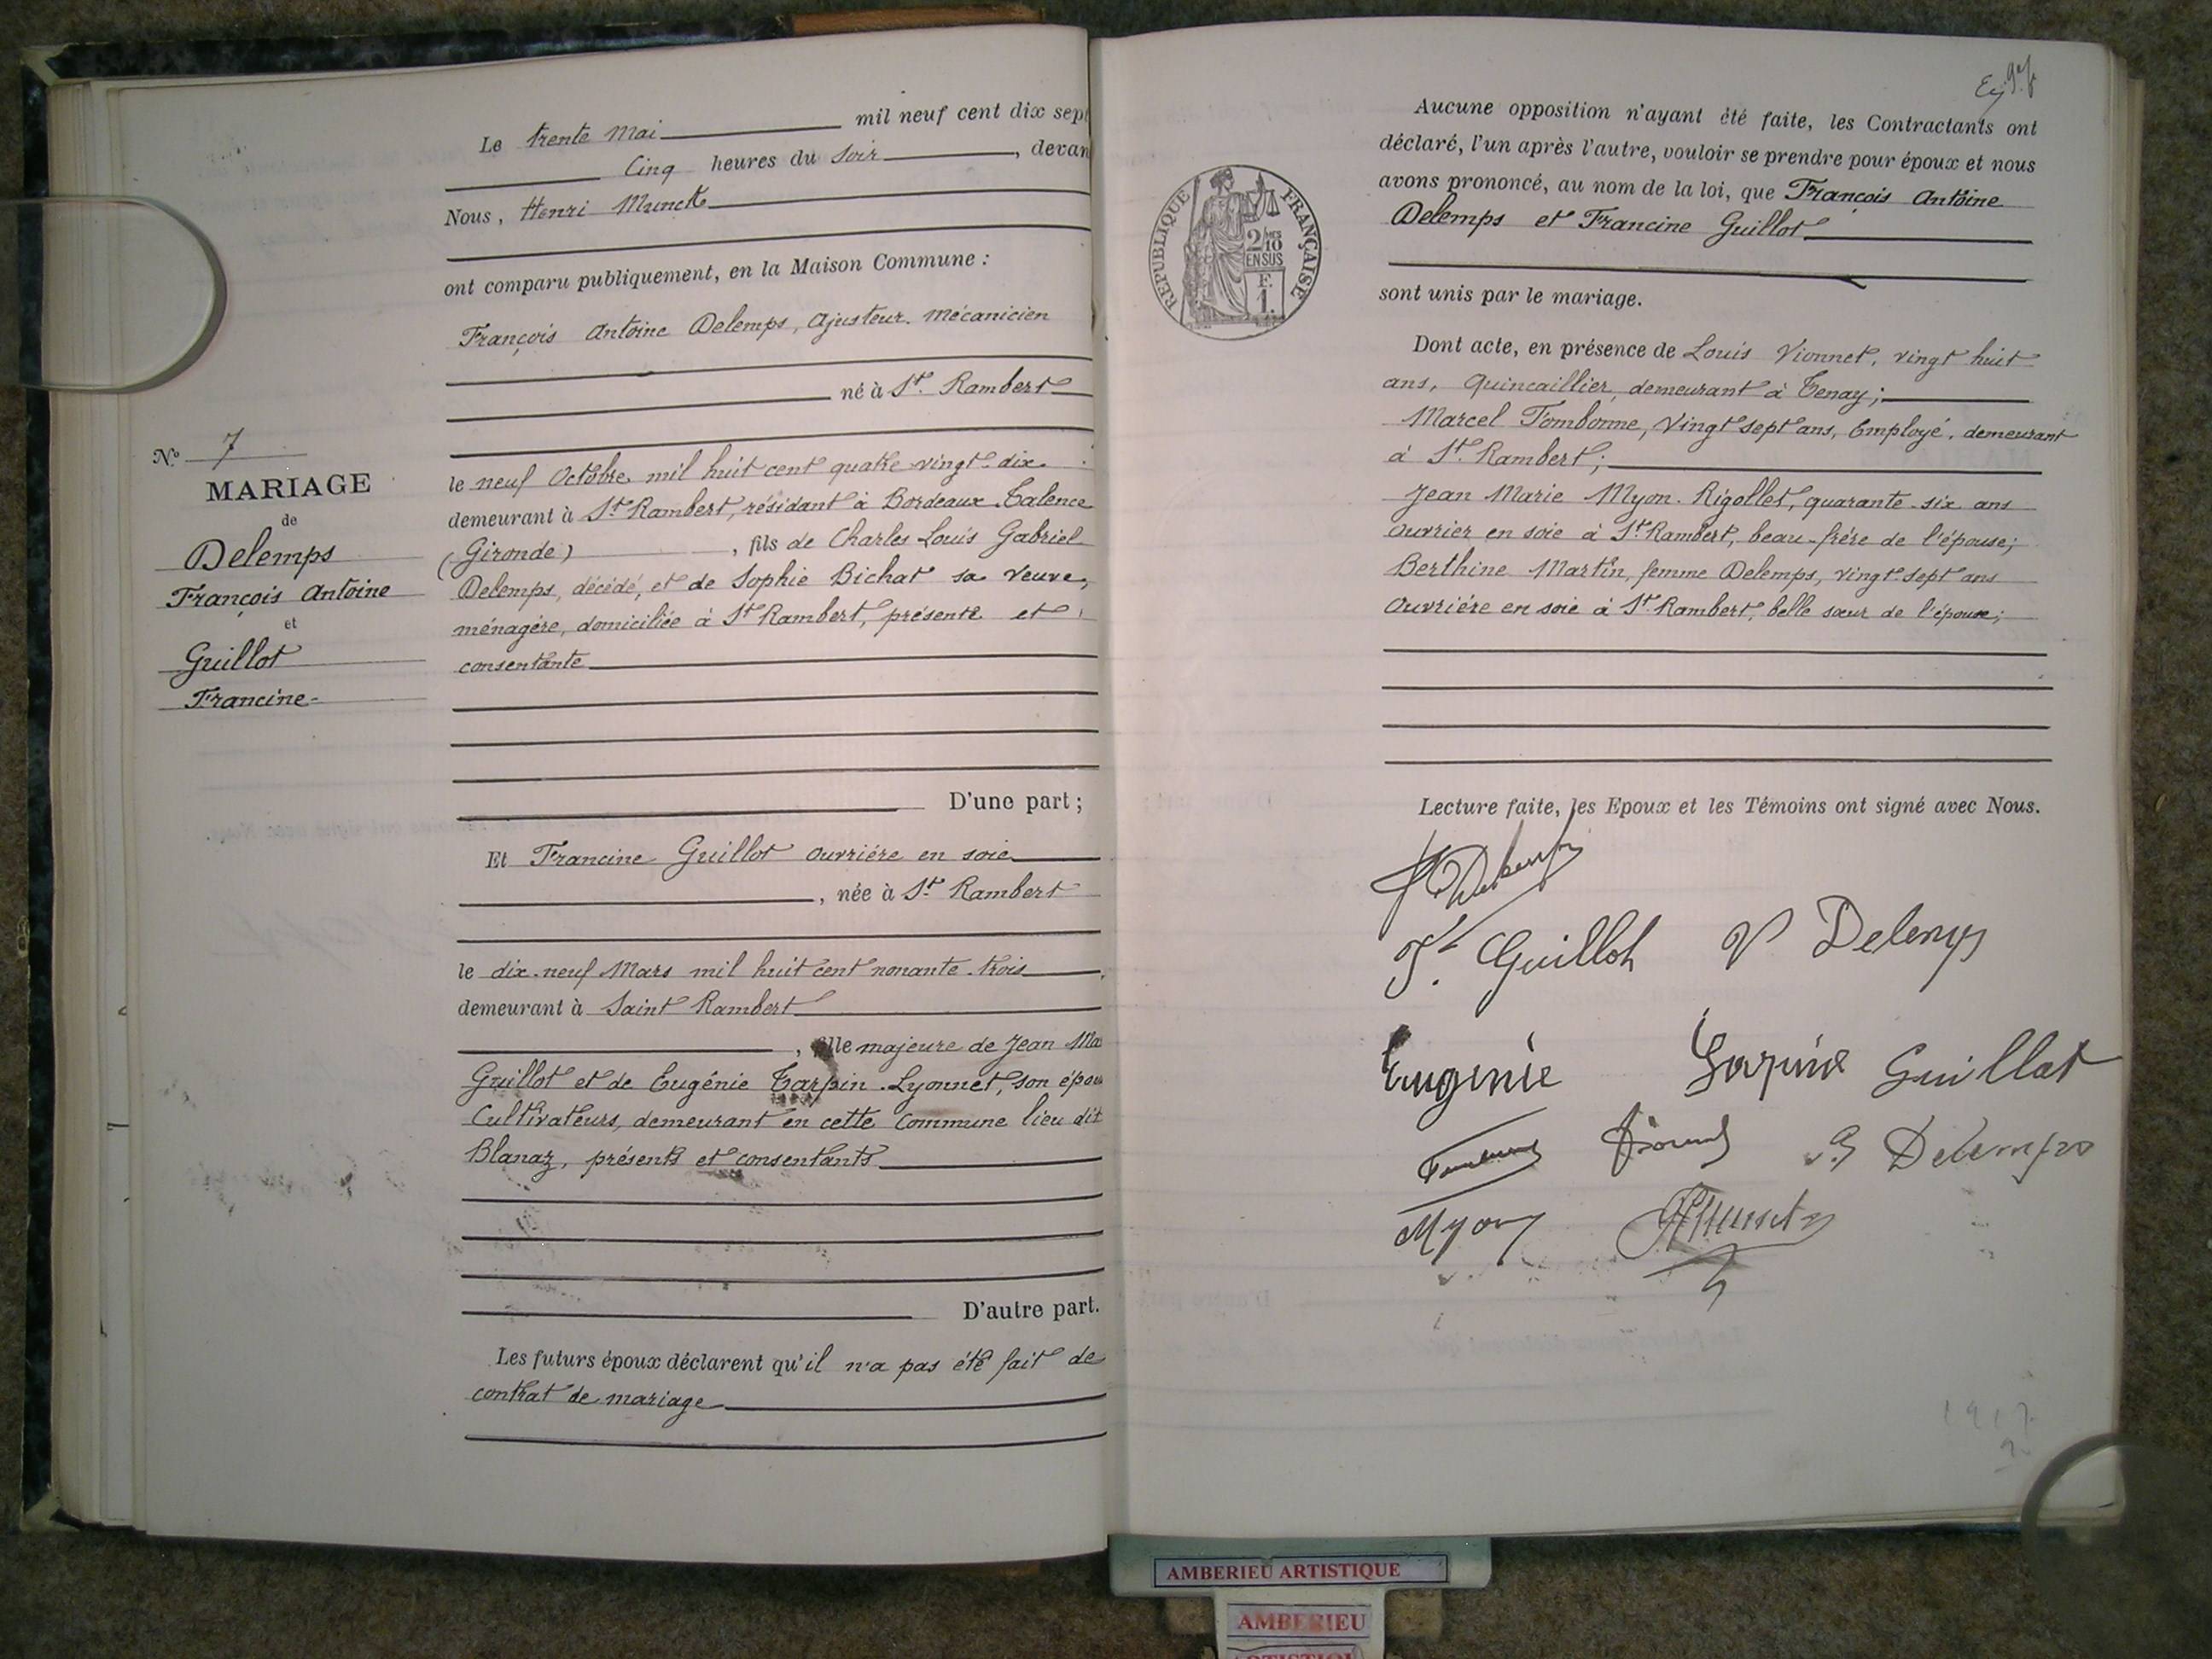 Le trente Mai mil neuf cent dix sept
Cinq heures du soir, devan
Nous, Henri Munck
ont comparu publiquement, en la Maison Commune :
François Antoine Delemps, Ajusteur. mécanicien
né à St. Rambert
le neuf Octobre mil huit cent quatre vingt-dix
demeurant à St. Rambert, résidant à Bordeaux Talence
(Gironde), fils de Charles Louis Gabriel
Delemps, décédé, et de Sophie Bichat sa veuve,
ménagère, domiciliée à St Rambert, présente et
consentante
D'une part ;
Et Francine Guillot ouvrière en soie
, née à St. Rambert
le dix-neuf Mars mil huit cent nonante-trois
demeurant à Saint Rambert
, fille majeure de Jean Ma
Guillot et de Eugénie Tarpin-Lyonnet, son épou
Cultivateurs, demeurant en cette Commune lieu dit
Blanaz, présents et consentants
D'autre part.
Les futurs époux déclarent qu'il n'a pas été fait de
contrat de mariage
No 7
MARIAGE
de
Delemps
François Antoine
et
Guillot
Francine
REPUBLIQUE FRANÇAISE
2/10MES
EN SUS
F.
1.
Aucune opposition n'ayant été faite, les Contractants ont
déclaré, l'un après l'autre, vouloir se prendre pour époux et nous
avons prononcé, au nom de la loi, que François Antoine
Delemps et Francine Guillot
sont unis par le mariage.
Dont acte, en présence de Louis Vionnet, vingt huit
ans, Quincaillier, demeurant à Tenay;
Marcel Tombonne, Vingt sept ans, Employé, demeurant
à St. Rambert;
Jean Marie Myon-Rigollet, quarante-six ans
ouvrier en soie à St. Rambert, beau-frère de l'épouse;
Berthine Martin, femme Delemps, vingt-sept ans
ouvrière en soie à St. Rambert, belle sœur de l'épouse;
Lecture faite, les Epoux et les Témoins ont signé avec Nous.
Guillot V Delemps
Eugénie Guillot
Delemps
Myon
1917
AMBERIEU ARTISTIQUE
AMBERIEU
ARTISTIQUE